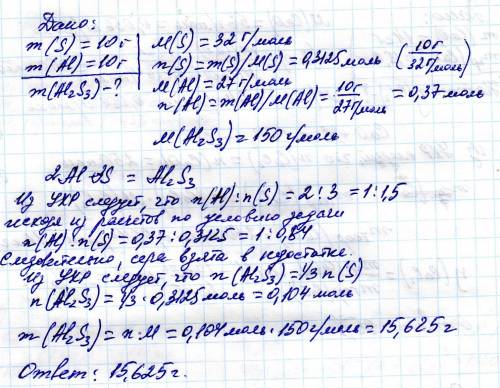 Дано:
m(S) = 10г
m(Al) = 10г
m(Al₂S₃) - ?
M(S) = 32 г/моль
n(S) = m(S)/M(S) = 0,3125 моль (10г / 32 г/моль)
M(Al) = 27 г/моль
n(Al) = m(Al)/M(Al) = 10г / 27 г/моль = 0,37 моль
M(Al₂S₃) = 150 г/моль
2Al 3S = Al₂S₃
Из УХР следует, что n(Al) : n(S) = 2 : 3 = 1 : 1,5
исходя из расчетов по условию задачи
n(Al) : n(S) = 0,37 : 0,3125 = 1 : 0,84
Следовательно, сера взята в недостатке.
Из УХР следует, что n(Al₂S₃) = 1/3 n(S)
n(Al₂S₃) = 1/3 · 0,3125 моль = 0,104 моль
m(Al₂S₃) = n · M = 0,104 моль · 150 г/моль = 15,625 г
Ответ: 15,625 г.